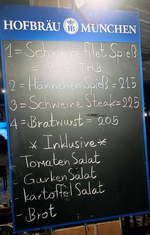 HOFBRÄU MÜNCHEN
1 = Schweine filet Spieß
= THB
2 = Hähnchen Spieß = 215
3 = Schweine Steak = 225
4 = Bratwurst = 205
* Inklusive *
- Tomaten Salat
- Gurken Salat
- kartoffel Salat
- Brot